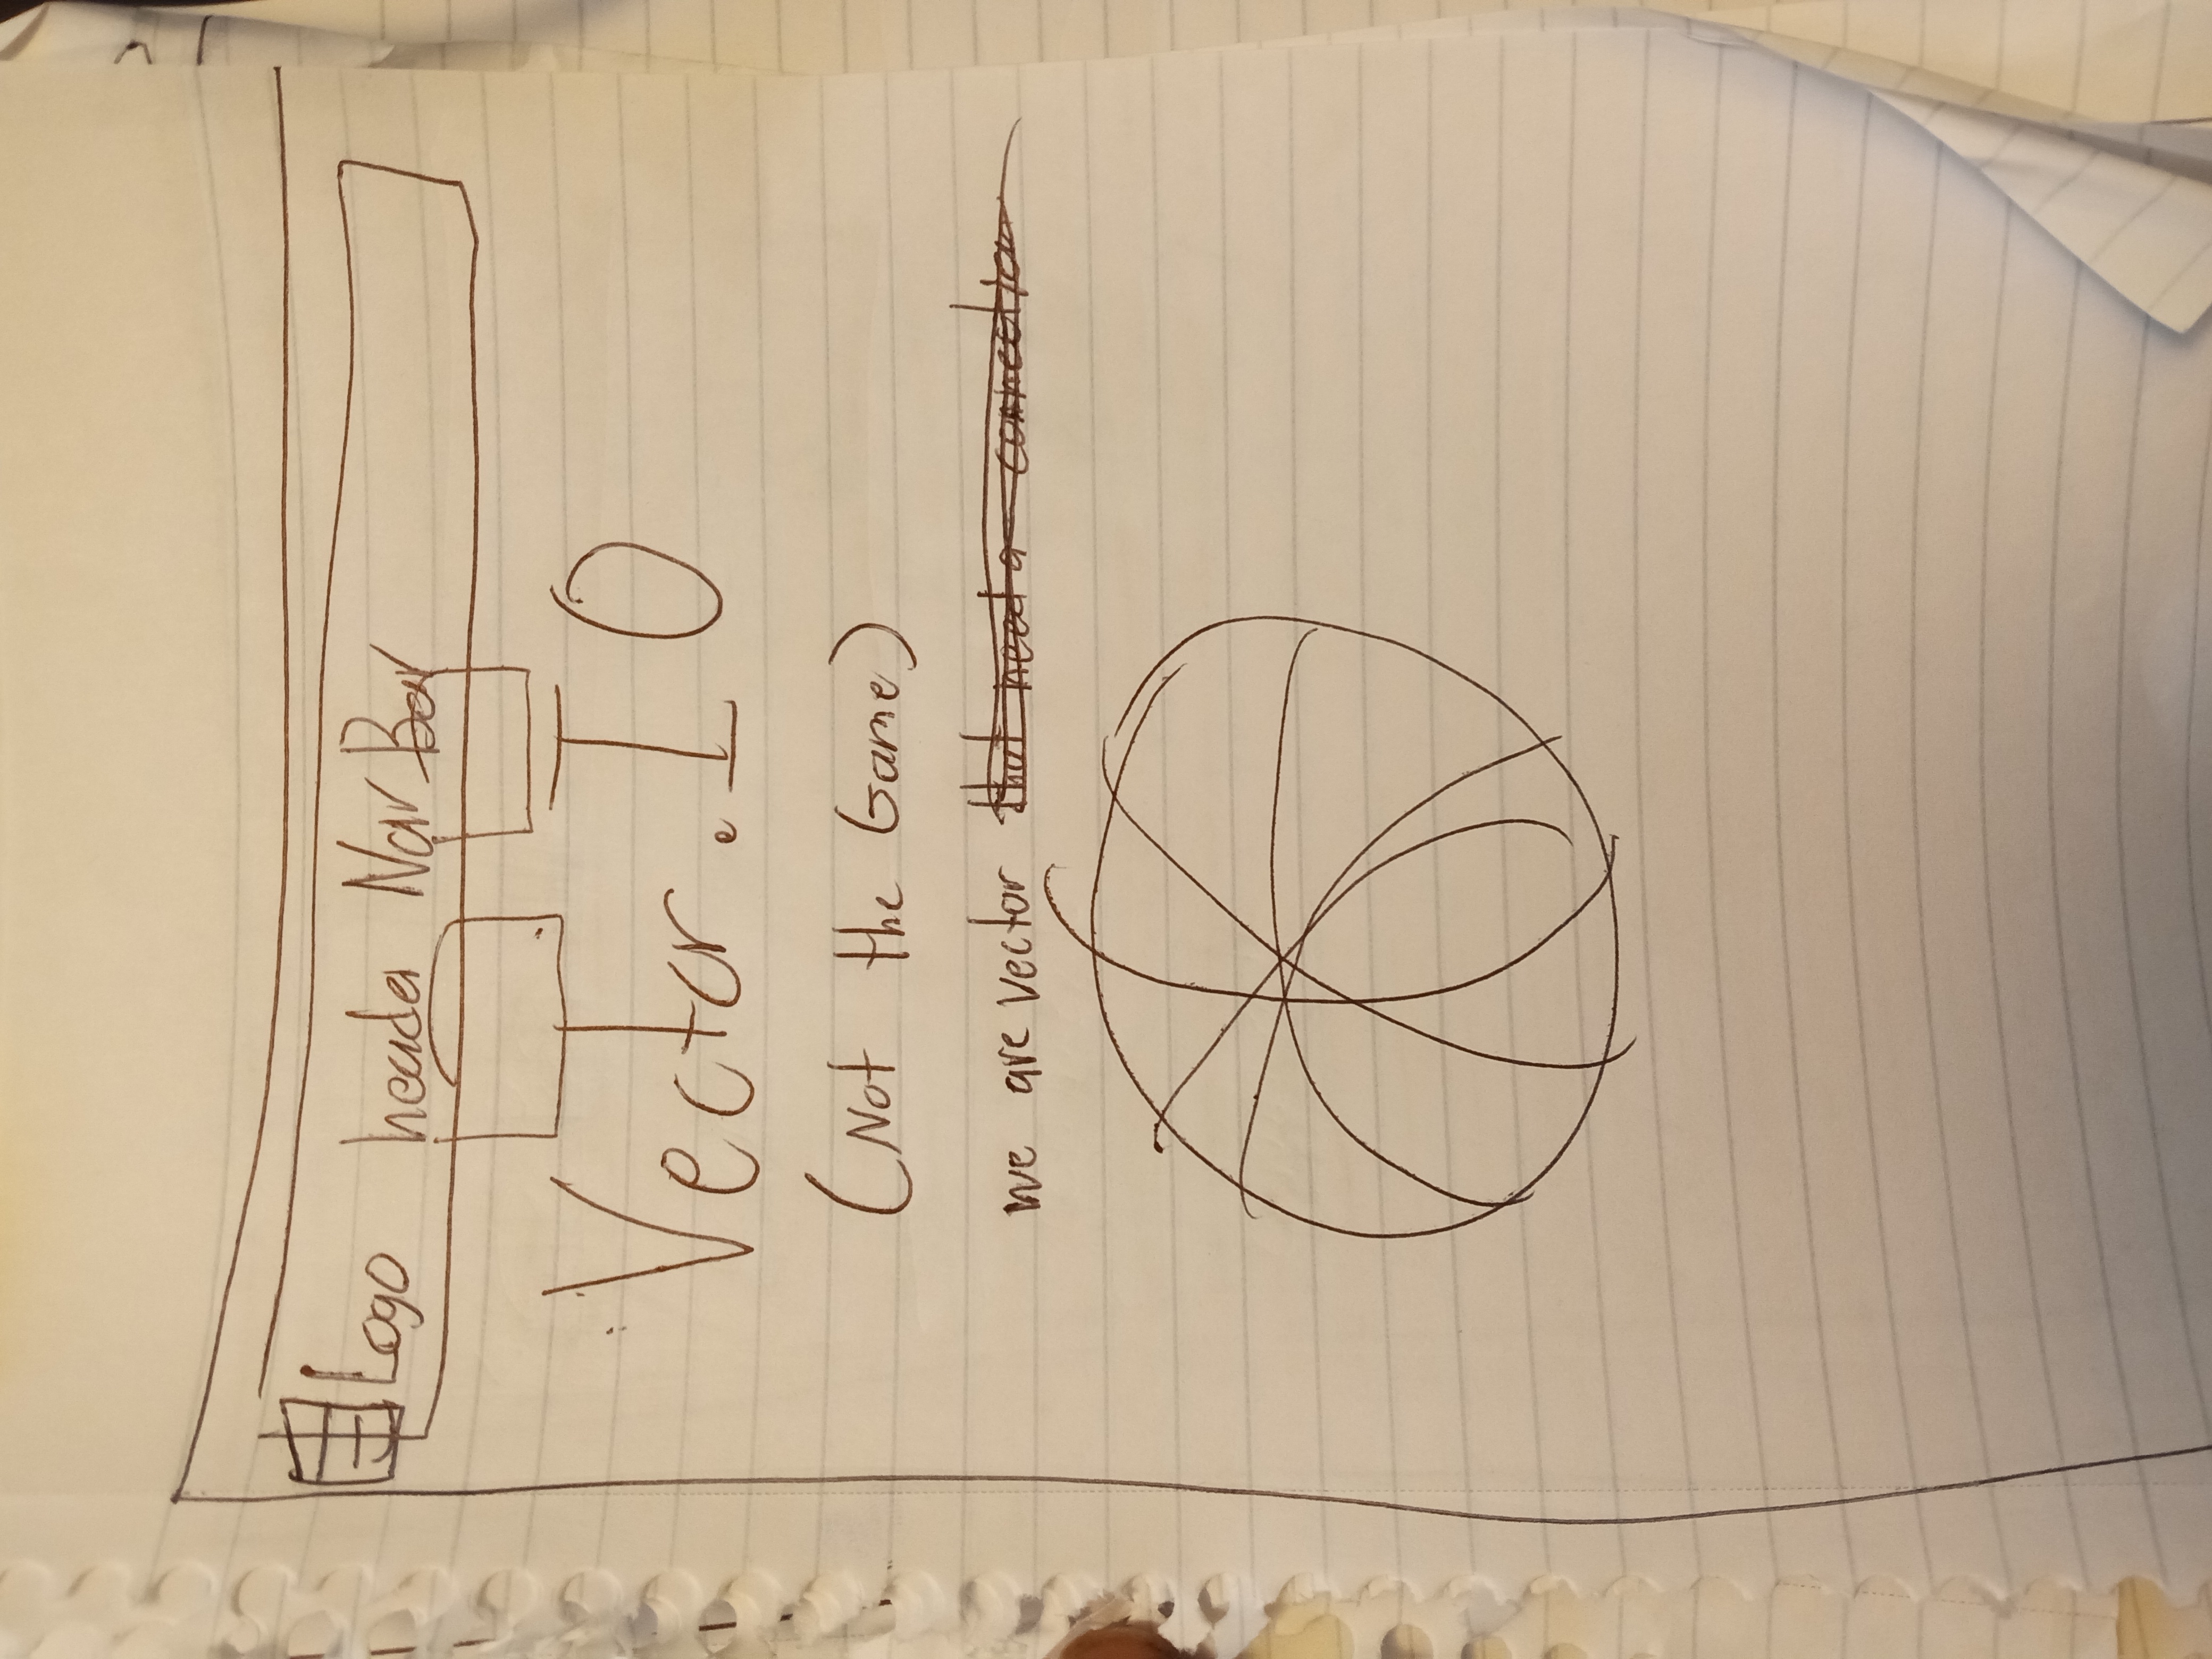 Logo header Nav Bar
Vector.IO
(Not the Game)
we are vector that need a connection